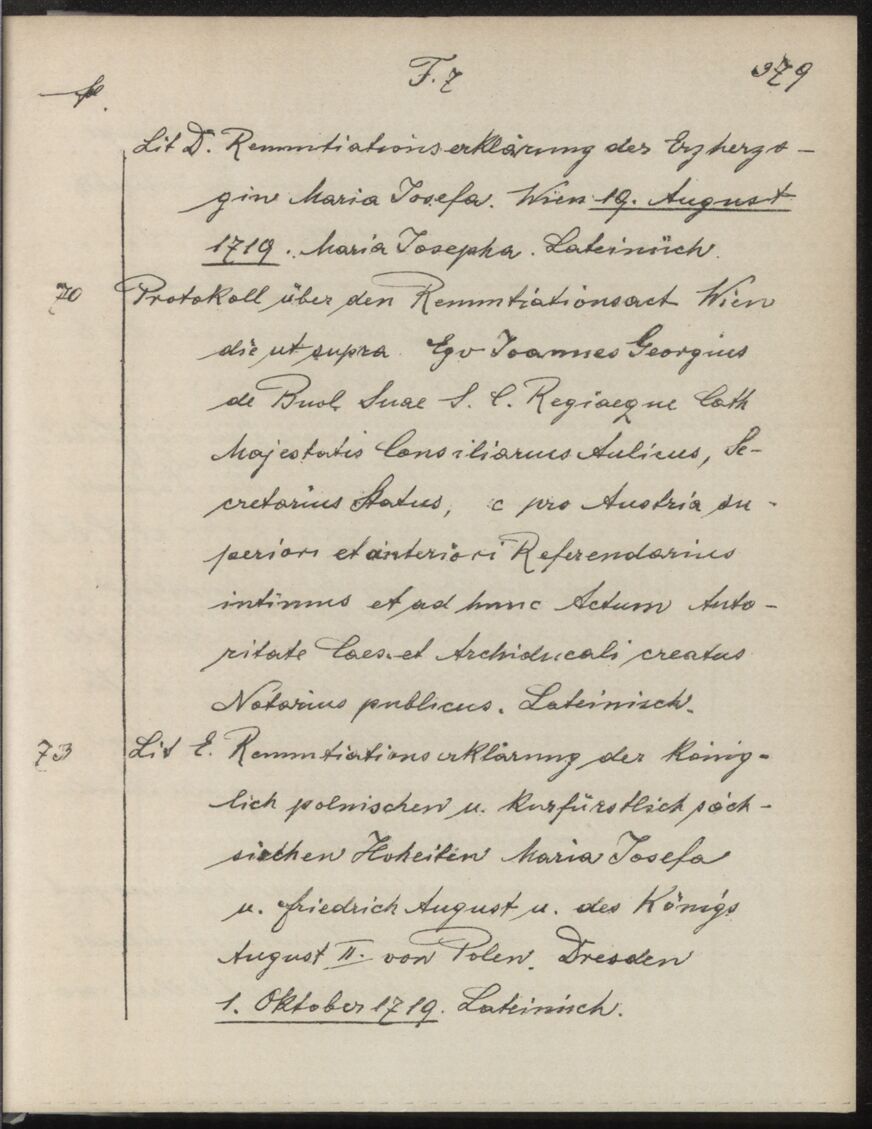 F. 7
379
fol.
Lit D. Renuntiationserklärung der Erzherzo-
gin Maria Josefa. Wien 19. August
1719. Maria Josepha. Lateinisch.
70 Protokoll über den Renuntiationsact Wien
die ut supra. Ego Joannes Georgius
de Buol Suae S. C. Regiaeque Cath
Majestatis Consiliarius Aulicus, Se-
cretarius Status, c pro Austria su-
periori et anteriori Referendarius
intimus et ad hunc Actum Auto-
ritate Caes. et Archiducali creatus
Notarius publicus. Lateinisch.
73 Lit E. Renuntiationserklärung der König-
lich polnischen u. Kurfürstlich säch-
sischen Hoheiten Maria Josefa
u. Friedrich August u. des Königs
August II. von Polen. Dresden
1. Oktober 1719. Lateinisch.